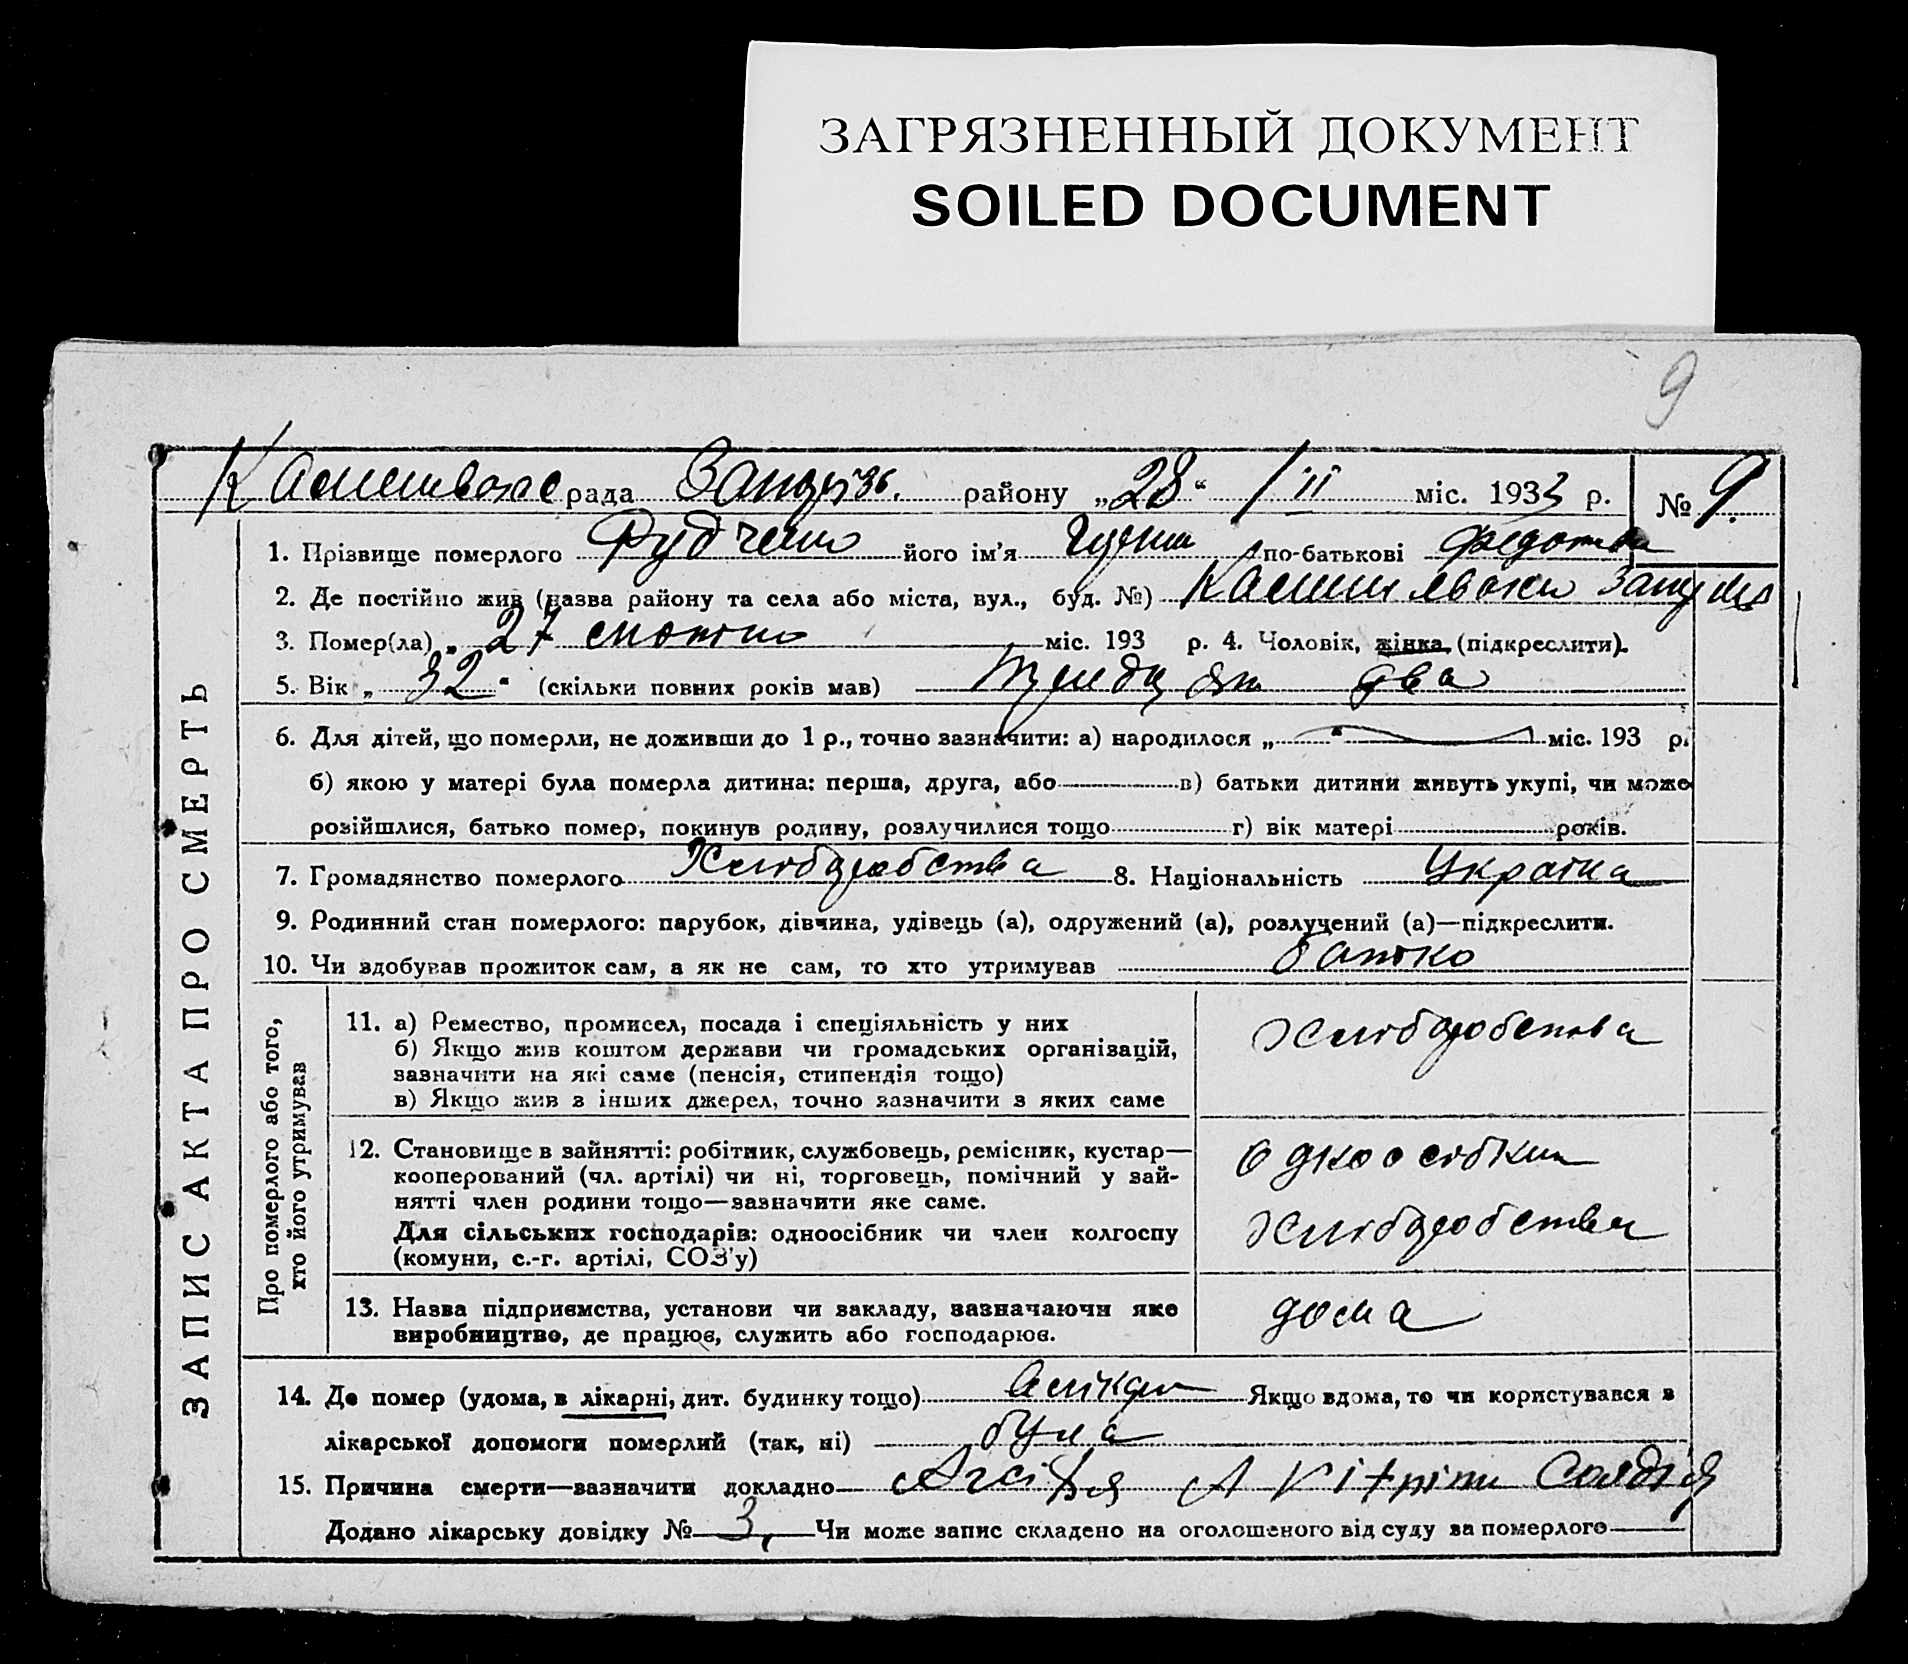 ЗАГРЯЗНЕННЫЙ ДОКУМЕНТ
SOILED DOCUMENT
9
рада району „28“ /II міс. 1933 р. № 9.
ЗАПИС АКТА ПРО СМЕРТЬ
1. Прізвище померлого Рудченко його ім'я по-батькові
2. Де постійно жив (назва району та села або міста, вул., буд. №)
3. Помер(ла) „ 27 лютого міс. 193 р. 4. Чоловік, жінка (підкреслити).
5. Вік „ 32 “ (скільки повних років мав) два
6. Для дітей, що померли, не доживши до 1 р., точно зазначити: а) народилося „ “ міс. 193 р.
б) якою у матері була померла дитина: перша, друга, або в) батьки дитини живуть укупі, чи може
розійшлися, батько помер, покинув родину, розлучилися тощо г) вік матері років.
7. Громадянство померлого Хлібороб ства 8. Національність Україна
9. Родинний стан померлого: парубок, дівчина, удівець (а), одружений (а), розлучений (а)—підкреслити.
10. Чи здобував прожиток сам, а як не сам, то хто утримував батько
Про померлого або того,
хто його утримував
11. а) Ремество, промисел, посада і спеціяльність у них
б) Якщо жив коштом держави чи громадських організацій,
зазначити на які саме (пенсія, стипендія тощо)
в) Якщо жив з інших джерел, точно зазначити з яких саме
12. Становище в зайнятті: робітник, службовець, ремісник, кустар—
кооперований (чл. артілі) чи ні, торговець, помічний у зай-
нятті член родини тощо—зазначити яке саме.
Для сільських господарів: одноосібник чи член колгоспу
(комуни, с.-г. артілі, СОЗ'у)
13. Назва підприємства, установи чи закладу, зазначаючи яке
виробництво, де працює, служить або господарює.
дома
14. Де помер (удома, в лікарні, дит. будинку тощо) Якщо вдома, то чи користувався з
лікарської допомоги померлий (так, ні) була
15. Причина смерти—зазначити докладно
Додано лікарську довідку № 3, Чи може запис складено на оголошеного від суду за померлого